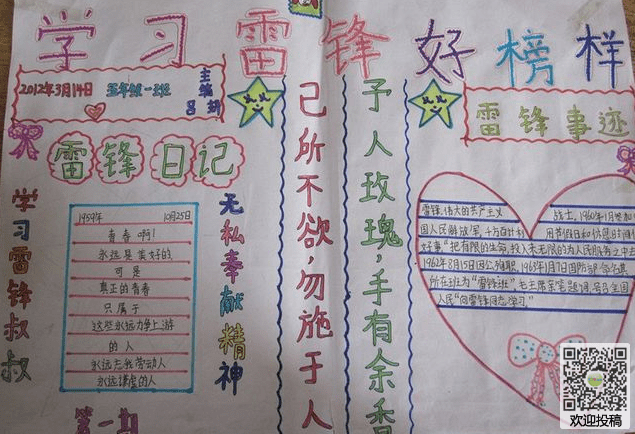 学习雷锋好榜样
2012年3月14日 五年级一班 主编
雷锋日记
学习雷锋叔叔
1959年 10月25日
青春啊!
永远是美好的
可是
真正的青春
只属于
这些永远力争上游
的人
永远忘我劳动人
永远谦虚的人
无私奉献精神
第一期
己所不欲,勿施于人
予人玫瑰,手有余香
雷锋事迹
雷锋,伟大的共产主义 战士,1960年1月参加
国人民解放军,
好事"把有限的生命,投入未无限的为人民服务之中去
1962年8月15日因公殉职,1963年1月7日国防部命名其
所在班为"雷锋班"毛主席亲笔题词,号召全国
人民"向雷锋同志学习"
欢迎投稿